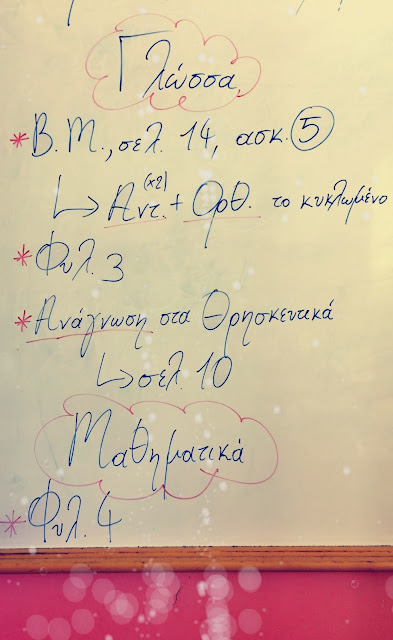 Γλώσσα
* Β.Μ., σελ. 14, ασκ. 5
↳ Αντ. (x2) + Ορθ. το κυκλωμένο
* Φυλ. 3
* Ανάγνωση στα Θρησκευτικά
↳ σελ. 10
Μαθηματικά
* Φυλ. 4